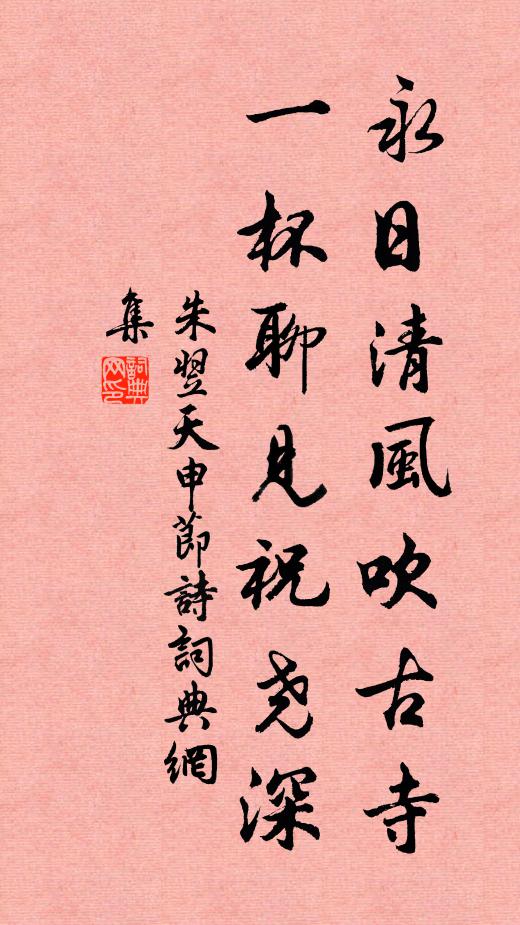 永日清風吹古寺
一杯聊見祝尧深
朱翌天申節詩詞典網
集
詞典網印